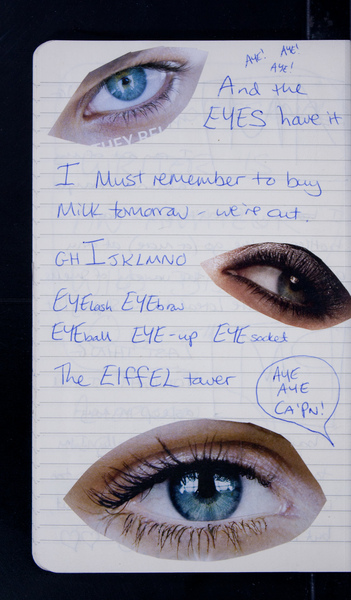 AYE! AYE!
AYE!
And the
EYES have it
THEY BEL
I Must remember to buy
Milk tomorrow - we're out.
GHIJKLMNO
EYElash EYEbrow
EYEball EYE-up EYE socket
The EIffEL tower
AYE
AYE
CA'PN!